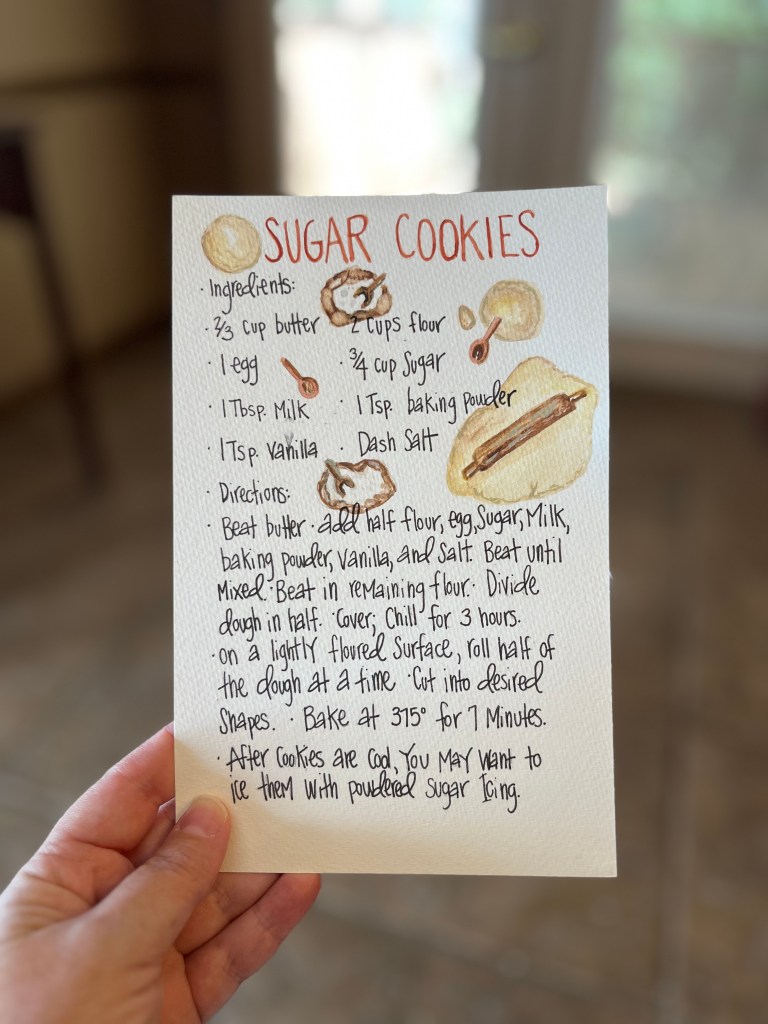 SUGAR COOKIES
· Ingredients:
· 2/3 cup butter 2 cups flour
· 1 egg · 3/4 cup Sugar
· 1 Tbsp. Milk · 1 Tsp. baking powder
· 1 Tsp. Vanilla · Dash Salt
· Directions:
· Beat butter · add half flour, egg, Sugar, Milk,
baking powder, Vanilla, and Salt. Beat until
Mixed. · Beat in remaining flour. · Divide
dough in half. · Cover; Chill for 3 hours.
· on a lightly floured Surface, roll half of
the dough at a time · Cut into desired
Shapes. · Bake at 375° for 7 Minutes.
· After Cookies are Cool, You May Want to
ice them with powdered Sugar Icing.